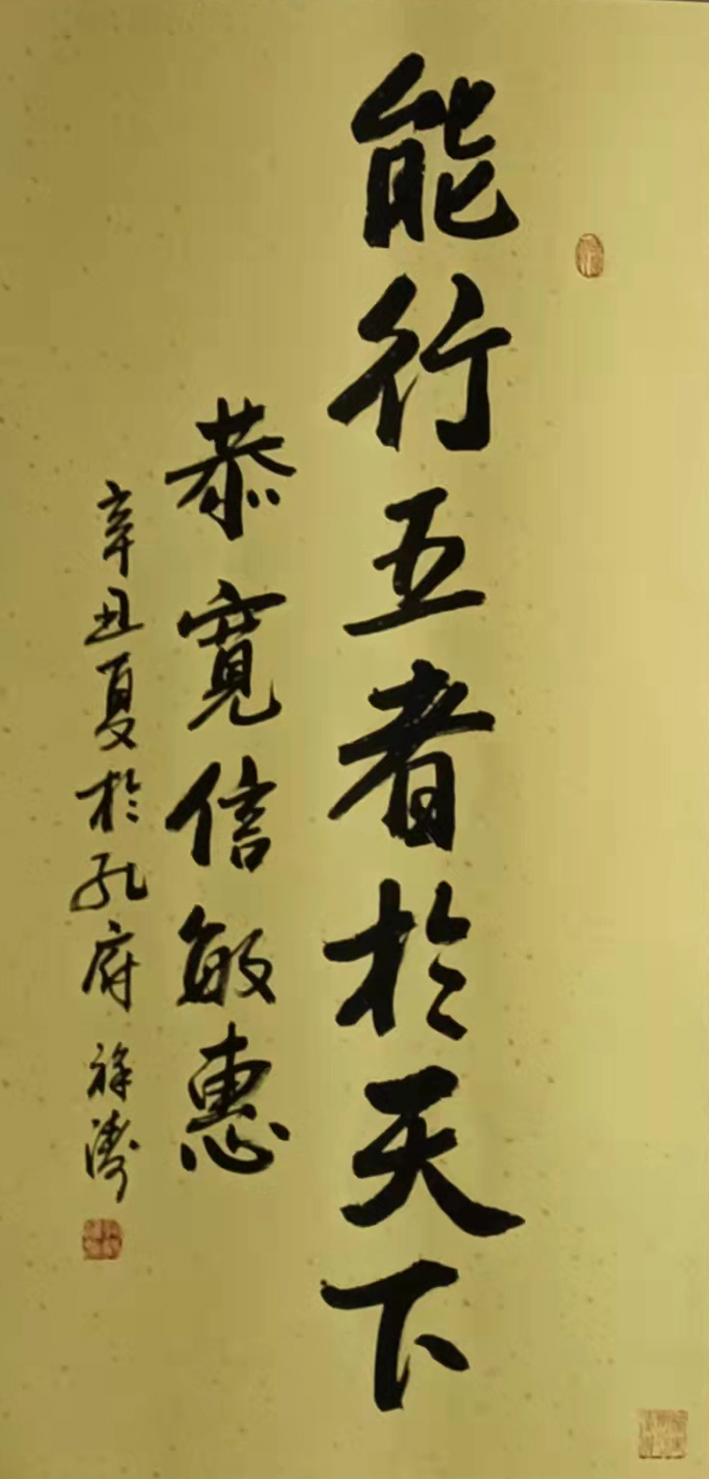 能行五者於天下
恭寬信敏惠
辛丑夏於孔府 祥濤